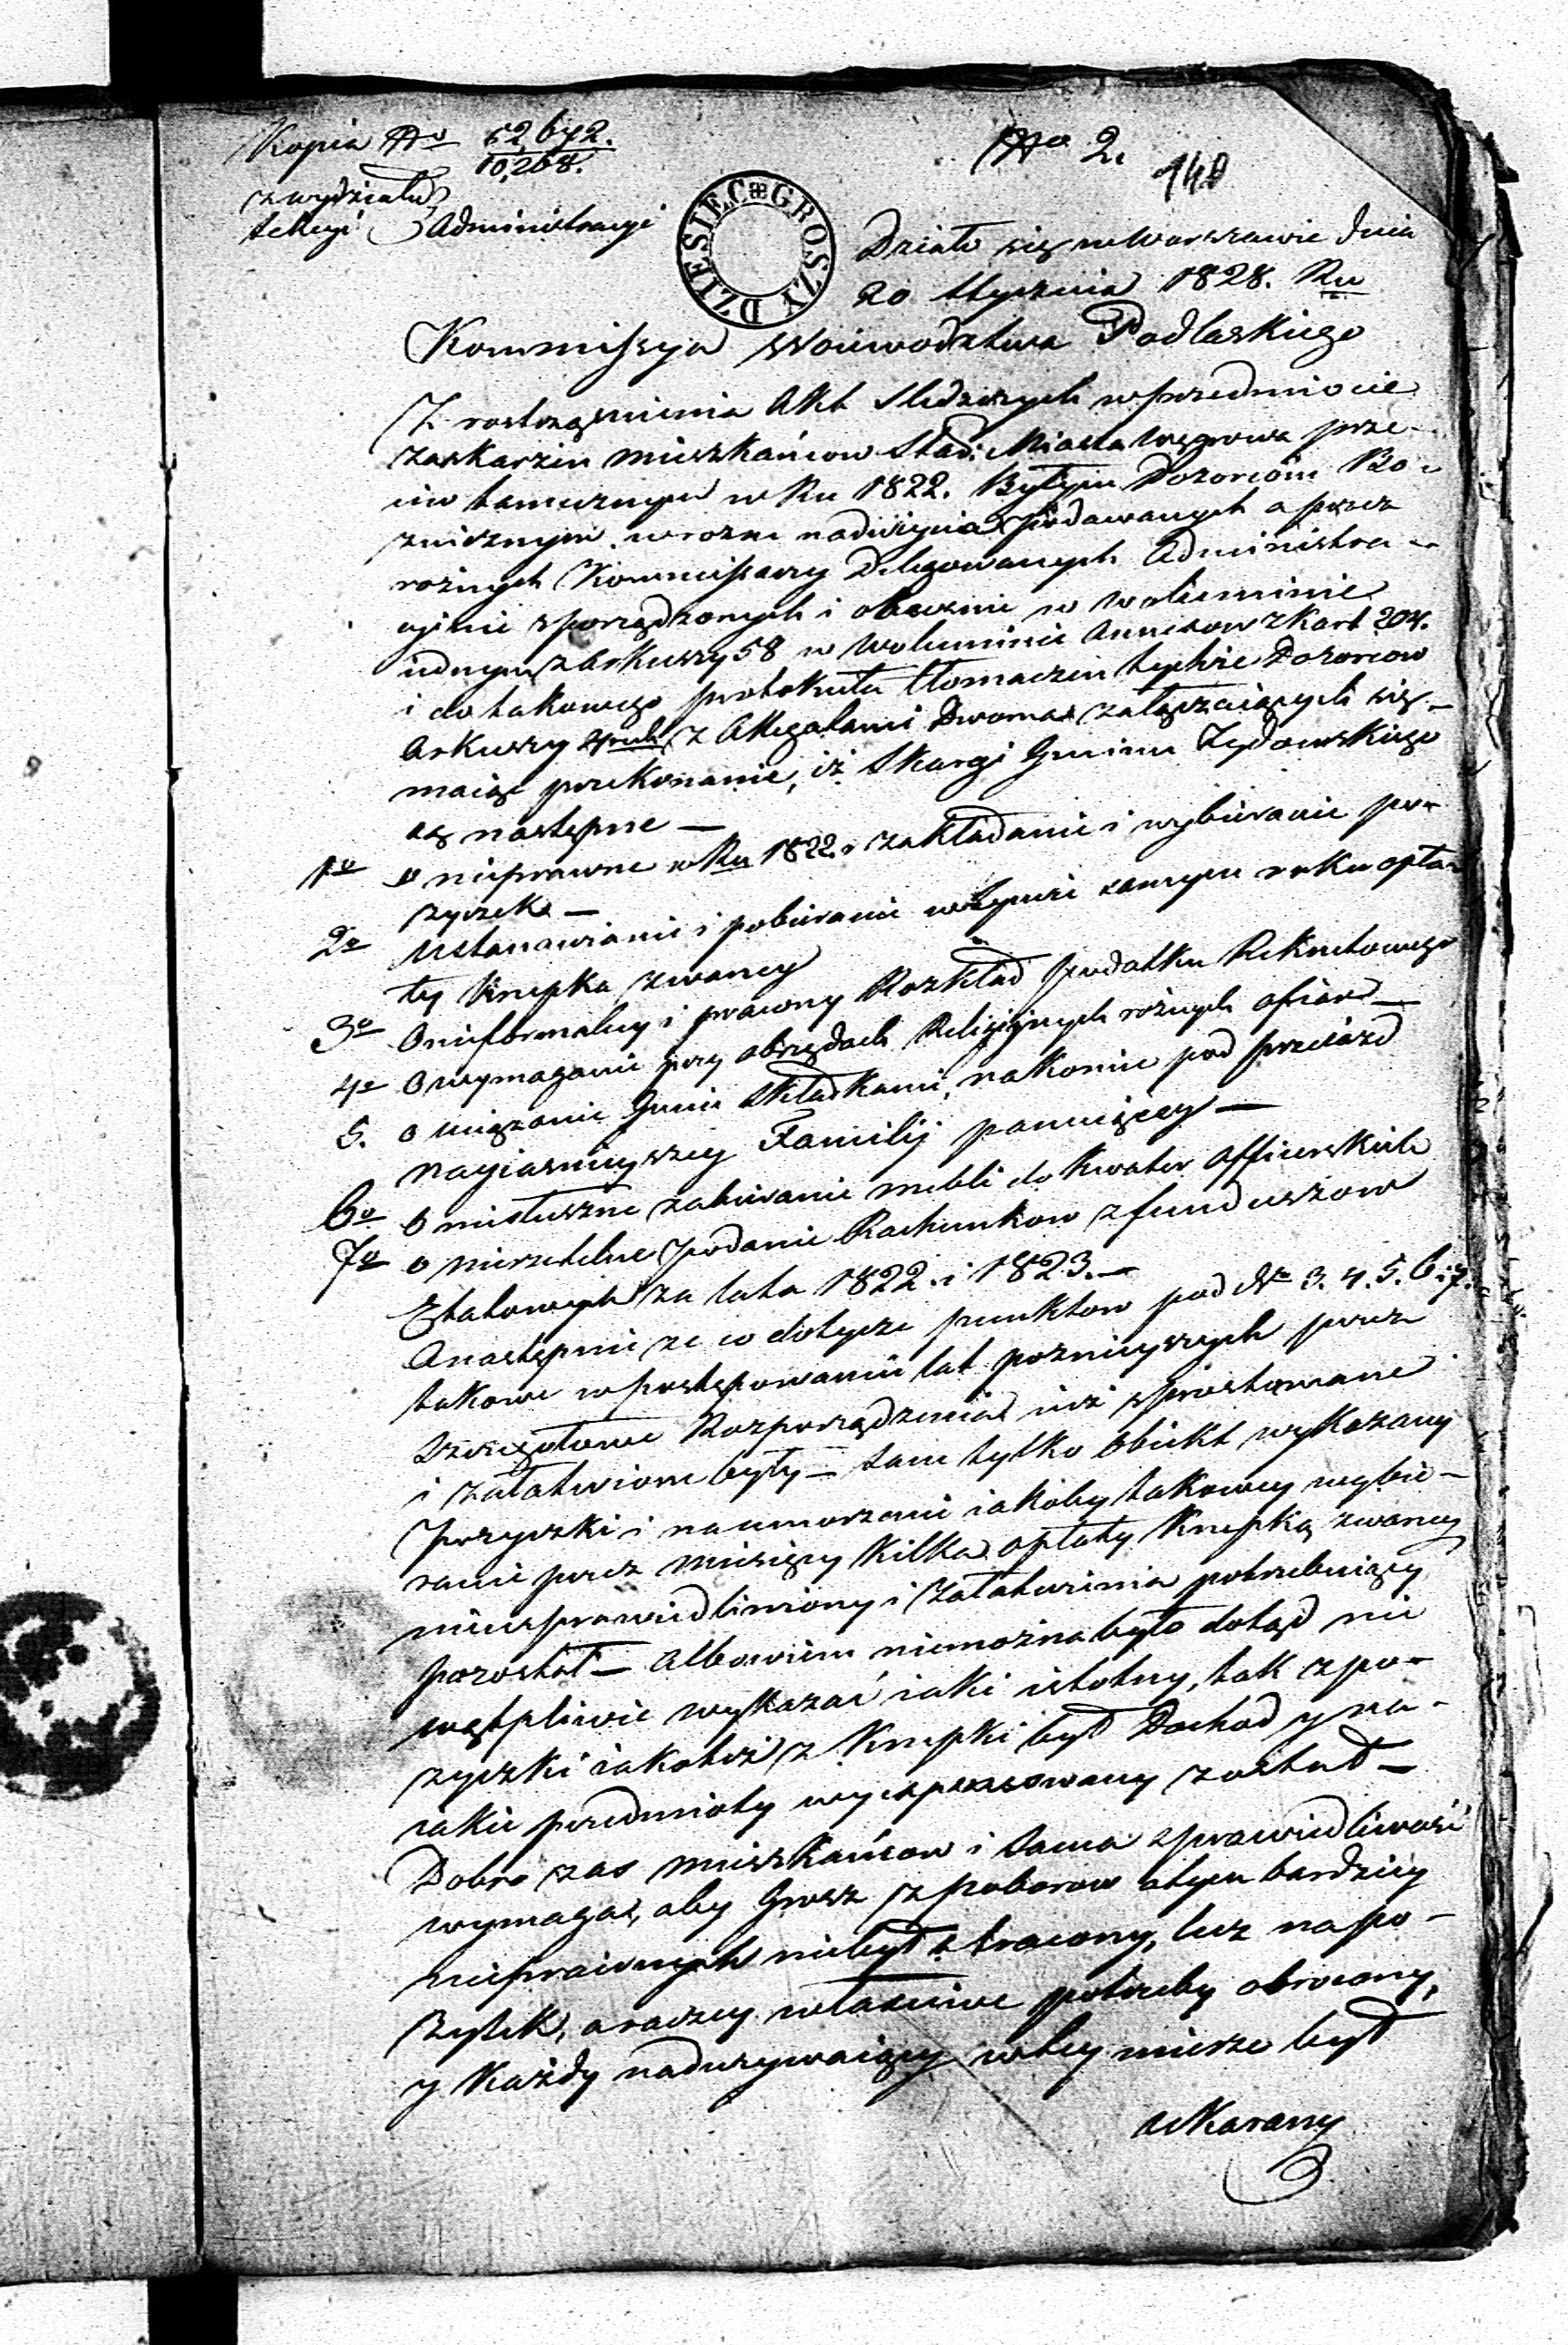 Kopia No 52,672.
10,268.
z wydziału
sekcyi Administracyi
No 2.
140
DZIESIEC GROSZY
Działo się w Warszawie dnia
20 Stycznia 1828. Ru
Kommissya Woiewodztwa Podlaskiego
Z rostrząsnienia Akt Sledczych w przedmiocie
zaskarzen mieszkańcow Stad: Miasta Węgrowa prze-
ciw tamecznym w Ru 1822. Byłym Dozorcom Bo-
znicznym w rozne nadużycia podawanych a przez
rożnych Kommissarzy Delegowanych Administra-
cyinie sporządzonych i obecnie w woluminie
iednym z Arkuszy 58 w Woluminie Annexow z kart 204.
i do takowego protokułu tłomaczen tychże Dozorcow
Arkuszy 4rech z Allegatami Dwoma załączaiących się —
maiąc przekonanie, iż Skargi Gminu Zydowskiego
są następne —
1o o nieprawne w Ru 1822. zakładanie i wybieranie po-
zyczek —
2o Ustanawianie i pobieranie w tymże samym roku opła-
ty Krupka zwaney
3o O nieformalny i prawny Rozkład podatku Rekrutowego
4o O wymaganie przy obrzędach Religiinych rożnych ofiar —
5. o uciązanie Gminu Składkami, nakoniec pod przeiazd
Nayiasnieyszey Familij panuiącey —
6o o niesłuszne zabieranie mebli do Kwater officerskich
7o o nierzetelne podanie Rachunkow z funduszow
Etatowych za lata 1822. i 1823. —
A następnie ze co dotycze punktow pod No 3. 4. 5. 6 i 7.
takowe w postępowaniu lat poznieyszych przez
Szczegołowe Rozporządzenia iuż sprostowane
i załatwione były — tam tylko obiekt wykazany
pozyczki i na umorzenie iakoby takowey wybie-
ranie przez miesięcy kilka opłaty Krupką zwaney
nieusprawiedliwiony i załatwienia potrzebuiący
pozostał — Albowiem niemożna było dotąd nie
wątpliwie wykazać iaki istotny, tak z po-
zyczki iakoteż z Krupki był Dochod y na
iakie przedmioty wyexpensowany został —
Dobro zas mieszkańcow i sama sprawiedliwość
wymaga, aby Grosz z poborow a tym bardziey
nieprawnych niebył stracony, lecz na po-
zytek, a raczey własciwe potrzeby obrocony,
y każdy naduzywaiący w tey mierze był
ukarany